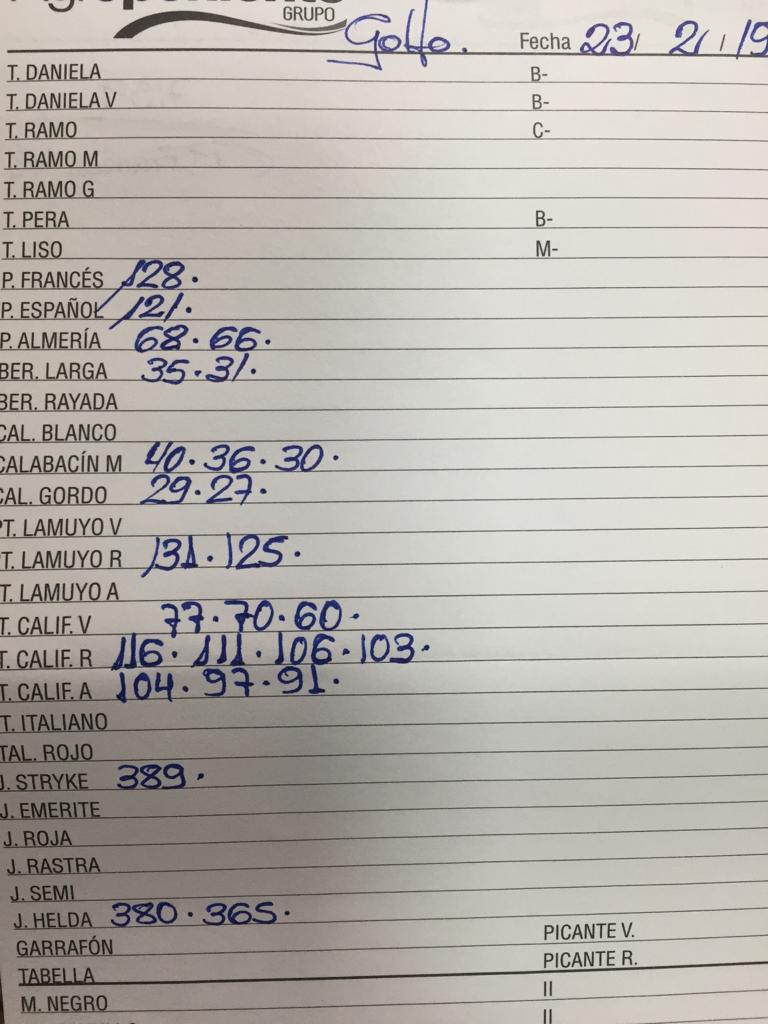 GRUPO
Golfo. Fecha 23/ 2/ /19
T. DANIELA B-
T. DANIELA V B-
T. RAMO C-
T. RAMO M
T. RAMO G
T. PERA B-
T. LISO M-
P. FRANCÉS 128.
P. ESPAÑOL 121.
P. ALMERÍA 68. 66.
BER. LARGA 35. 31.
BER. RAYADA
CAL. BLANCO
CALABACÍN M 40. 36. 30.
CAL. GORDO 29. 27.
PT. LAMUYO V
T. LAMUYO R 131. 125.
T. LAMUYO A
T. CALIF. V 77. 70. 60.
T. CALIF. R 116. 111. 106. 103.
T. CALIF. A 104. 97. 91.
T. ITALIANO
TAL. ROJO
J. STRYKE 389.
J. EMERITE
J. ROJA
J. RASTRA
J. SEMI
J. HELDA 380. 365.
GARRAFÓN PICANTE V.
TABELLA PICANTE R.
M. NEGRO II
II